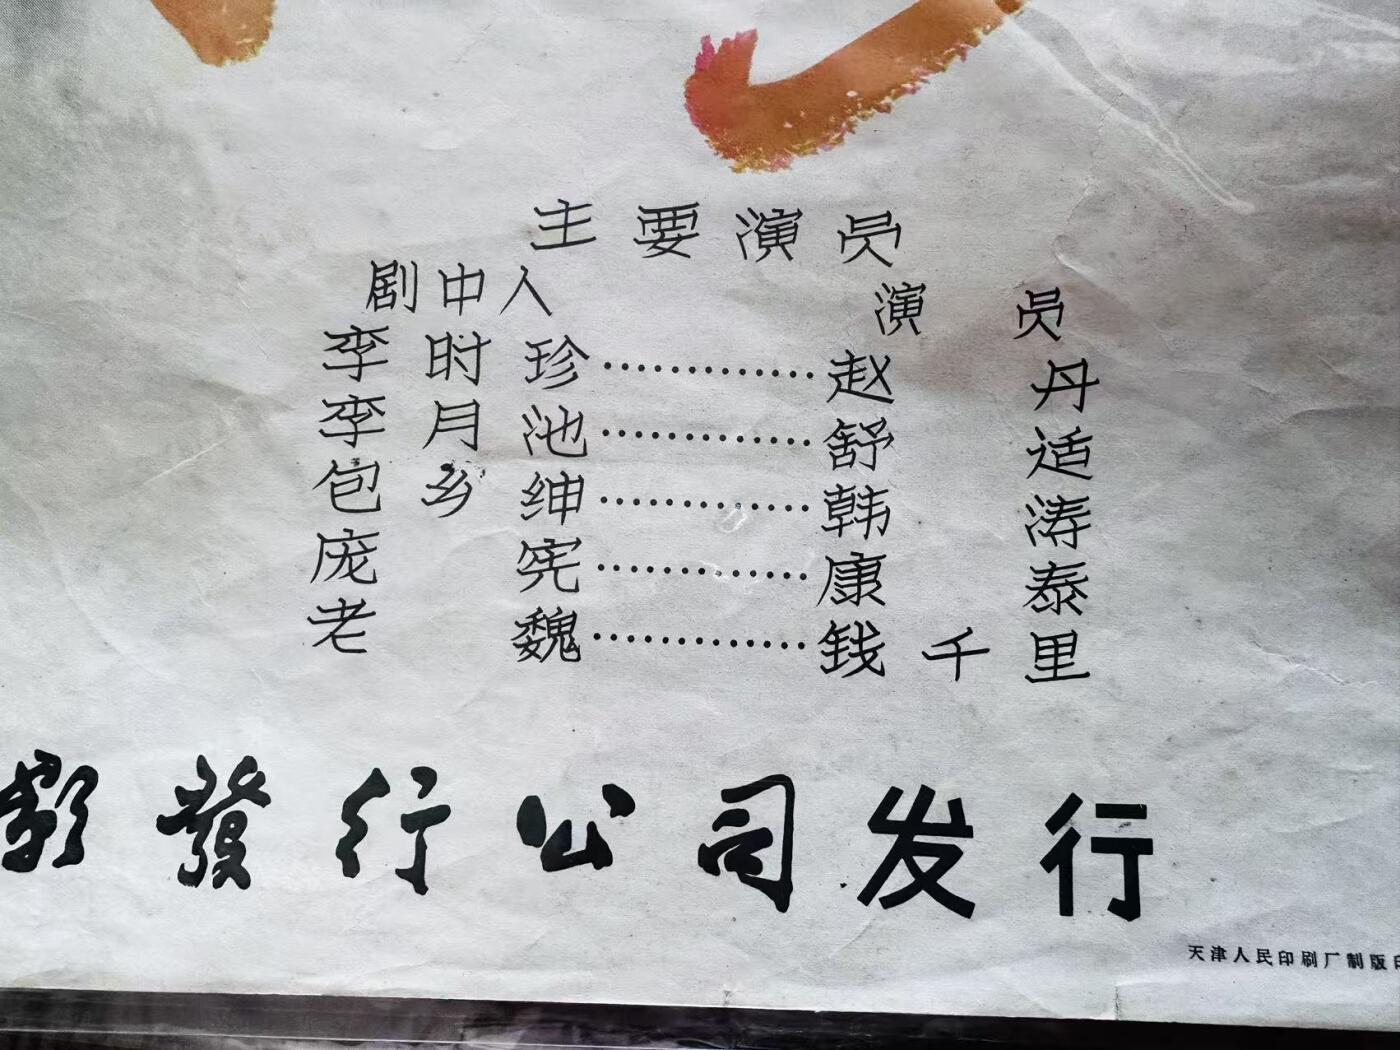 主要演员
剧中人 演员
李时珍…………赵丹
李月池…………舒适
包乡绅…………韩涛
庞宪…………康泰
老魏…………钱千里
影發行公司发行
天津人民印刷厂制版印